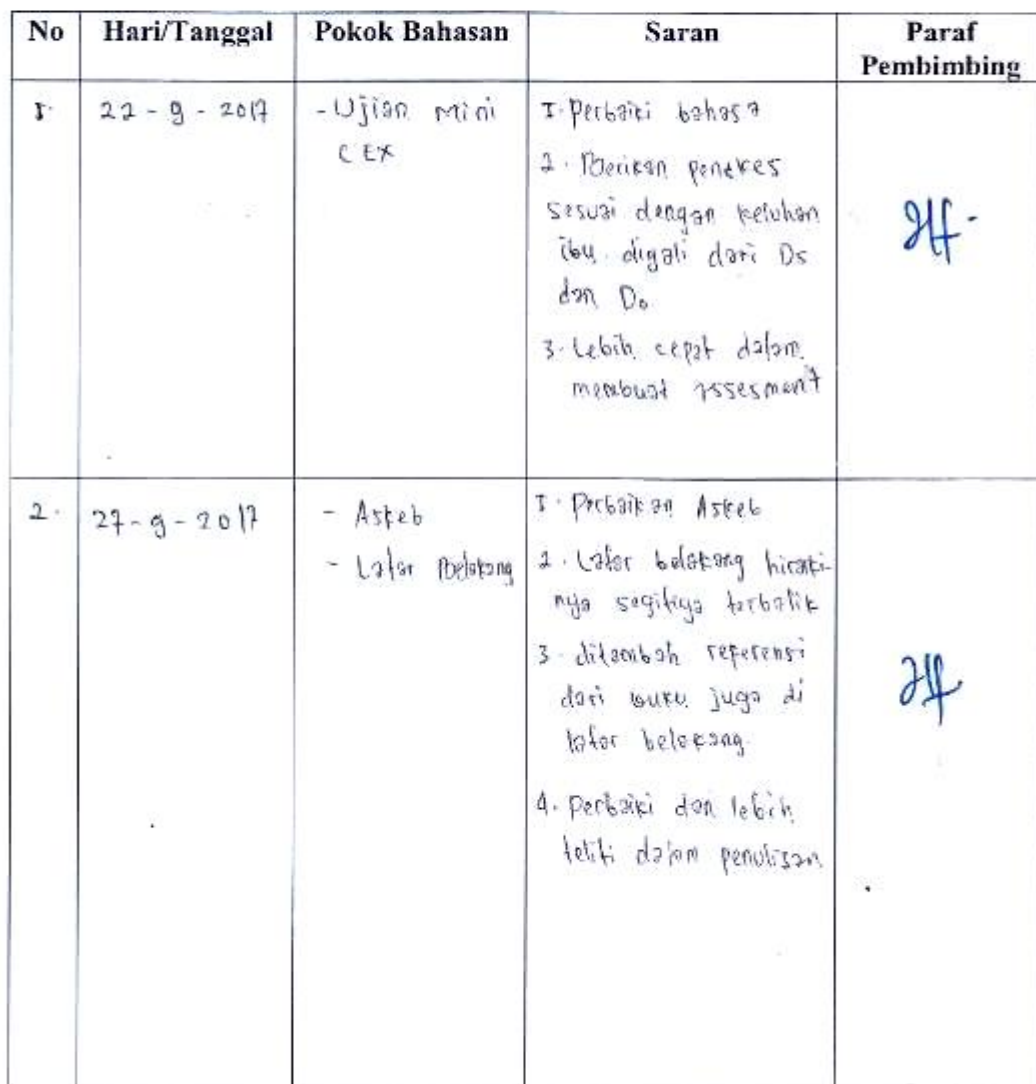 No Hari/Tanggal Pokok Bahasan Saran Paraf
Pembimbing
1. 22 - 9 - 2017 - Ujian Mini 1. Perbaiki bahasa
CEX
2. Berikan penkes
sesuai dengan keluhan
ibu. digali dari Ds
dan Do
3. Lebih cepat dalam
membuat assesment
2. 27 - 9 - 2017 - Askeb 1. Perbaikan Askeb
- Latar Belakang 2. Latar belakang hiraki
nya segitiga terbalik
3. ditambah referensi
dari buku juga di
latar belakang.
4. Perbaiki dan lebih
teliti dalam penulisan